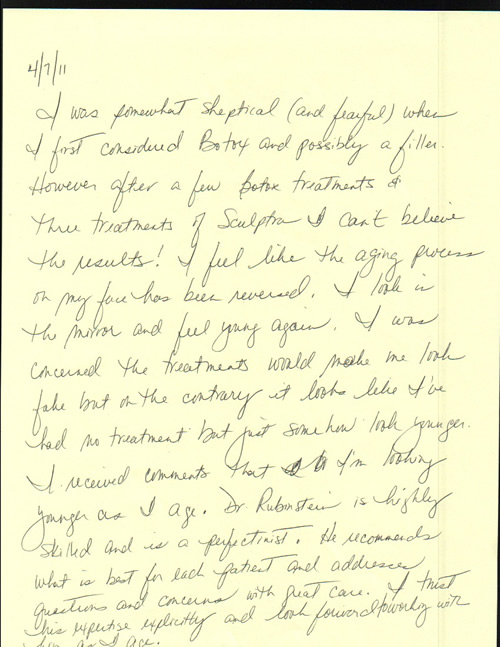 4/7/11
I was somewhat skeptical (and fearful) when
I first considered Botox and possibly a filler.
However after a few Botox treatments &
three treatments of Sculptra I can't believe
the results! I feel like the aging process
on my face has been reversed. I look in
the mirror and feel young again. I was
concerned the treatments would make me look
fake but on the contrary it looks like I've
had no treatment but just somehow look younger.
I received comments that I'm looking
younger as I age. Dr. Rubinstein is highly
skilled and is a perfectionist. He recommends
what is best for each patient and addresses
questions and concerns with great care. I trust
his expertise explicitly and look forward to working with
him as I age.